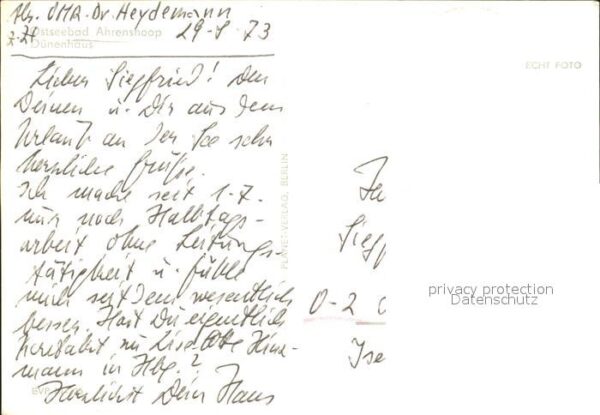 Abs. OMR. Dr. Heydemann
z. Zt. Ostseebad Ahrenshoop
Dünenhaus
29-8 73
ECHT FOTO
Lieber Siegfried! Den
Deinen u. Dir aus dem
Urlaub an der See sehr
herzliche Grüße.
Ich mache seit 1.7.
nur noch Halbtags-
arbeit ohne Leitungs-
tätigkeit u. fühle
mich seitdem wesentlich
besser. Hast Du eigentlich
Kontakt mit Liselotte
mann in Hbg.?
Herzlichst Dein Hans
PLANET-VERLAG, BERLIN
Siegf
O-2
Ise
privacy protection
Datenschutz